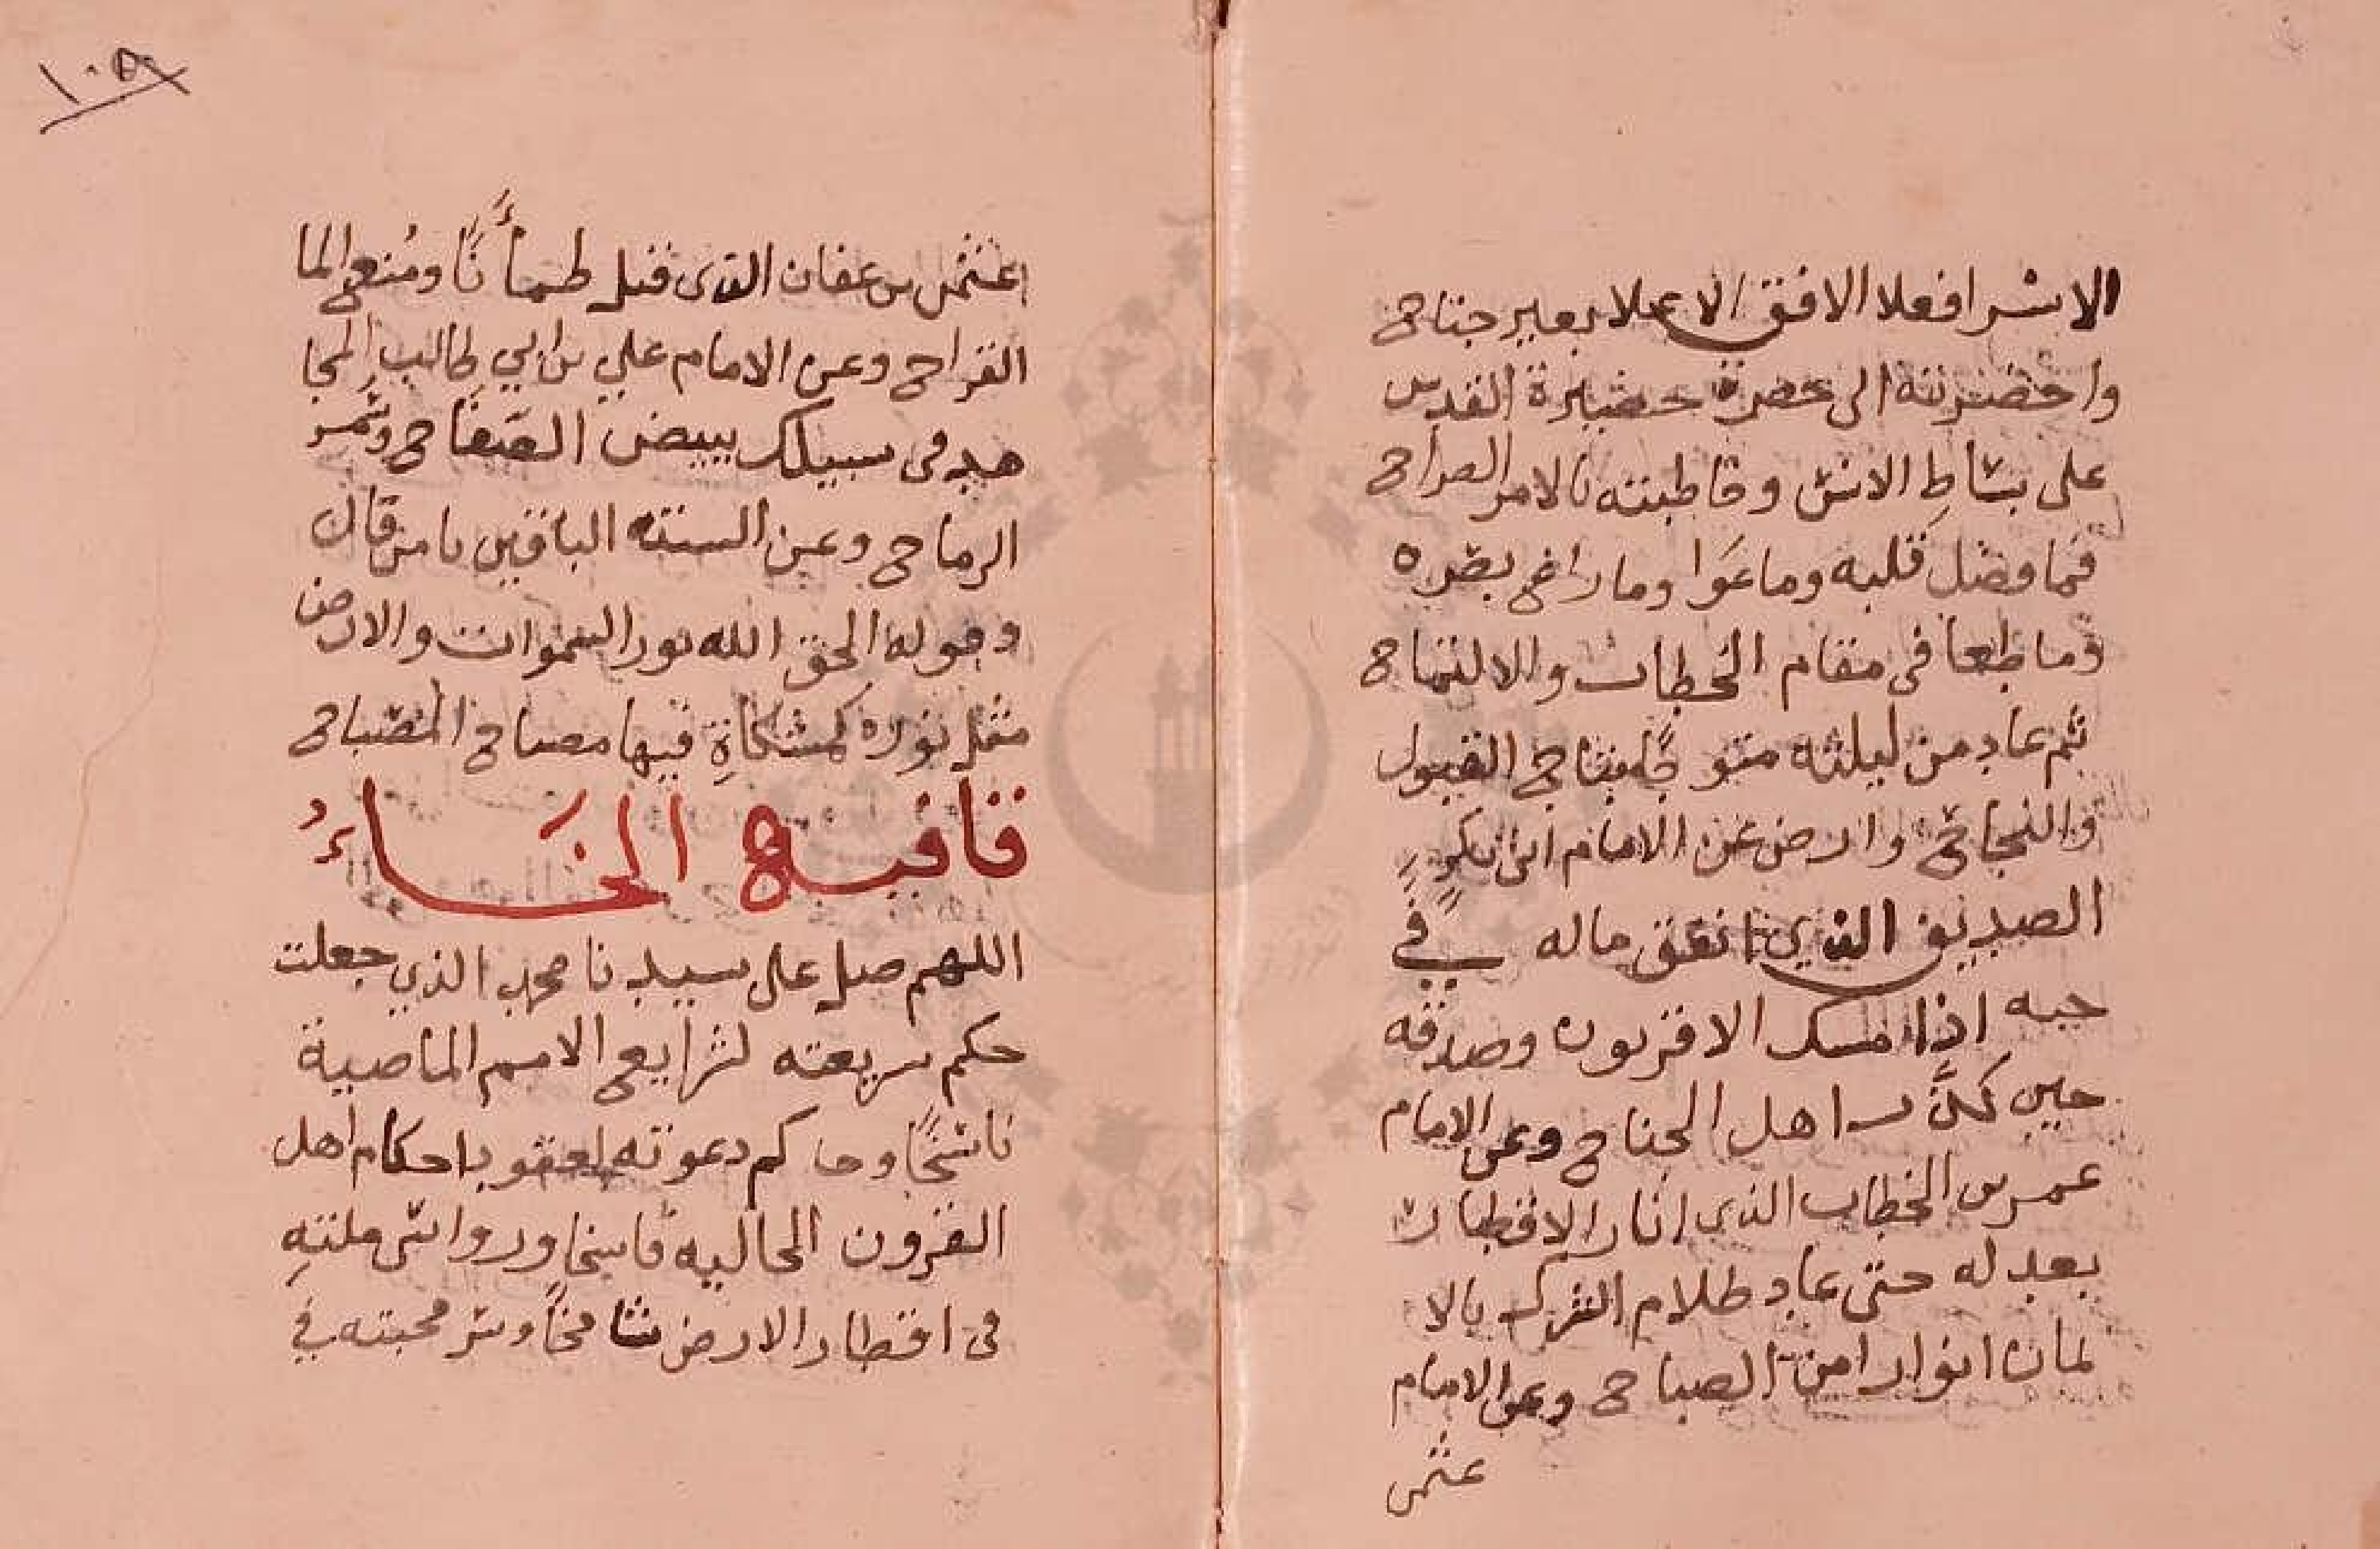 الاسرا فعلا الافق الاعلا بغير جناح
واحضرته الى حضرة حضيرة القدس
على بساط الانس وخاطبته بالامر الصراح
فما وضل قلبه وما غوا وما زاغ بصره
وما طغا فى مقام الخطاب والالتماح
ثم عاد من ليلته متوجًا بتاج القبول
والنجاح وارض عن الامام ابى بكرٍ
الصديق الذي انفق ماله في
حبه اذا مسك الاقربون وصدقه
حين كذّب اهل الجناح وعن الامام
عمر بن الخطاب الذى انار الاقطار
بعدله حتى عاد ظلام الشرك بالا
لمان انوارا من الصباح وعن الامام
عثمن
عثمن بن عفان الذى قتل ظمأنًا ومُنع الما
القراح وعن الامام علي بن ابي طالب المجا
هد فى سبيلك ببيض الصفاح وسمر
الرماح وعن السته الباقين يا من قال
وقوله الحق الله نور السموات والارض
مثل نوره كمشكاةٍ فيها مصباح المصباح
قافيه الخَاءُ
اللهم صل على سيدنا محمد الذي جعلت
حكم شريعته لشرايع الامم الماضية
ناسخًا وحاكم دعوته لعقود احكام اهل
القرون الخاليه فاسخا ورواسى ملتهِ
فى اقطار الارض شامخًا وسر محبته في
١٠٥